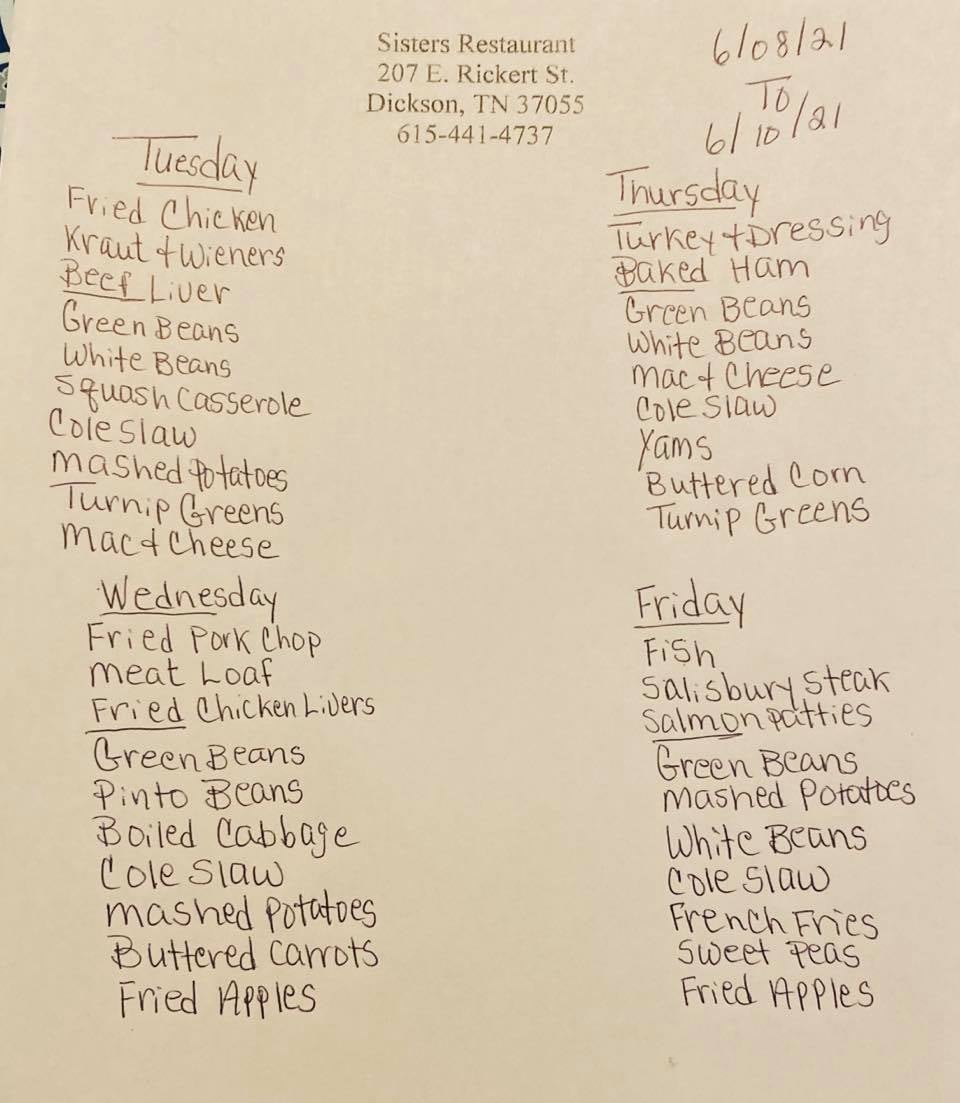 Sisters Restaurant
207 E. Rickert St.
Dickson, TN 37055
615-441-4737
6/08/21
TO
6/10/21
Tuesday
Fried Chicken
Kraut + Wieners
Beef Liver
Green Beans
White Beans
Squash Casserole
Cole Slaw
Mashed Potatoes
Turnip Greens
Mac + Cheese
Wednesday
Fried Pork Chop
Meat Loaf
Fried Chicken Livers
Green Beans
Pinto Beans
Boiled Cabbage
Cole Slaw
Mashed Potatoes
Buttered Carrots
Fried Apples
Thursday
Turkey + Dressing
Baked Ham
Green Beans
White Beans
Mac + Cheese
Cole Slaw
Yams
Buttered Corn
Turnip Greens
Friday
Fish
Salisbury Steak
Salmon Patties
Green Beans
Mashed Potatoes
White Beans
Cole Slaw
French Fries
Sweet Peas
Fried Apples